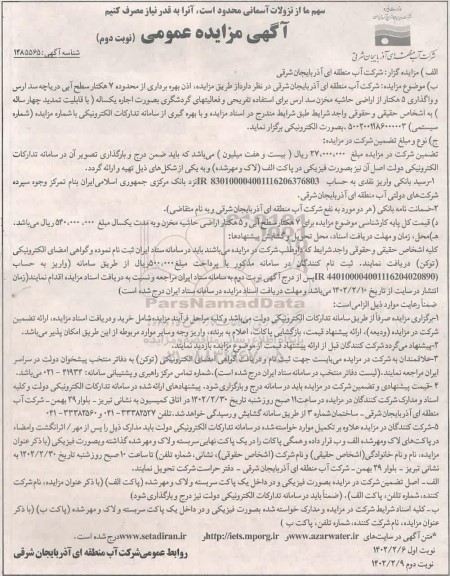 سهم ما از نزولات آسمانی محدود است، آنرا به قدر نیاز مصرف کنیم
آگهی مزایده عمومی (نوبت دوم)
شناسه آگهی: ۱۴۸۵۵۶۵
شرکت آب منطقه‌ای آذربایجان شرقی
الف) مزایده گزار: شرکت آب منطقه ای آذربایجان شرقی
ب) موضوع مزایده: شرکت آب منطقه ای آذربایجان شرقی در نظر دارد از طریق مزایده، اذن بهره برداری از محدوده ۷ هکتار سطح آبی دریاچه سد ارس
و واگذاری ۵ هکتار از اراضی حاشیه مخزن سد ارس برای استفاده تفریحی و فعالیتهای گردشگری بصورت اجاره یکساله (با قابلیت تمدید چهار ساله
) به اشخاص حقیقی و حقوقی واجد شرایط طبق شرایط مندرج در اسناد مزایده و با بهره گیری از سامانه تدارکات الکترونیکی با شماره مزایده (شماره
سیستمی) ۵۰۰۲۰۰۱۱۸۶۰۰۰۰۰۳ بصورت الکترونیکی برگزار نماید.
ج) نوع و مبلغ تضمین شرکت در مزایده:
تضمین شرکت در مزایده مبلغ ۲۷,۰۰۰,۰۰۰ ریال (بیست و هفت میلیون) می‌باشد که باید ضمن درج و بارگذاری تصویر آن در سامانه تدارکات
الکترونیکی دولت اصل آن نیز بصورت فیزیکی در پاکت الف (لاک و مهر شده) و به یکی از شکل‌های ذیل تهیه و ارائه گردد.
۱-رسید بانکی واریز نقدی به حساب IR 830100004001116206376803 نزد بانک مرکزی جمهوری اسلامی ایران بنام تمرکز وجوه سپرده
شرکت‌های دولتی آب منطقه‌ای آذربایجان شرقی.
۲-ضمانت نامه بانکی (هر دو مورد به نفع شرکت آب منطقه‌ای آذربایجان شرقی و به نام متقاضی).
د) قیمت کل پایه کارشناسی موضوع مزایده برای ۷ هکتار سطح آبی و ۵ هکتار اراضی حاشیه مخزن و به مدت یکسال مبلغ ۵۴۰,۰۰۰,۰۰۰ ریال می باشد.
ه) محل، زمان و مهلت دریافت اسناد، محل تحویل و گشایش پیشنهادها:
کلیه اشخاص حقیقی و حقوقی واجد شرایط که داوطلب شرکت در مزایده می‌باشند باید در سامانه ستاد ایران ثبت نام نموده و گواهی امضای الکترونیکی
(توکن) دریافت نمایند. ثبت نام کنندگان در سامانه مذکور با پرداخت مبلغ ریال از طریق سامانه (واریز به حساب
IR 440100004001116204020890) پس از درج آگهی نوبت دوم به سامانه ستاد ایران مراجعه و نسبت به دریافت اسناد مزایده اقدام نمایند (زمان
انتشار در سایت از تاریخ ۱۴۰۲/۲/۱۰ می‌باشد و مهلت دریافت اسناد مزایده در سامانه ستاد ایران درج شده است)
ضمناً رعایت موارد ذیل الزامی است:
۱-برگزاری مزایده صرفاً از طریق سامانه تدارکات الکترونیکی دولت می‌باشد و کلیه مراحل فرآیند مزایده شامل خرید و دریافت اسناد مزایده، ارائه تضمین
شرکت در مزایده (ودیعه)، ارائه پیشنهاد قیمت، بازگشایی پاکات، اعلام به برنده، واریز وجه و سایر موارد مربوطه از این طریق امکان پذیر می‌باشد.
۲-پیشنهاد می‌گردد شرکت کنندگان قبل از ارائه پیشنهاد قیمت از موضوع مزایده بازدید نمایند.
۳-علاقمندان به شرکت در مزایده می‌بایست جهت ثبت نام و دریافت گواهی امضای الکترونیکی (توکن) به دفاتر منتخب پیشخوان دولت در سراسر
ایران مراجعه نمایند. (لیست دفاتر منتخب در سامانه ستاد ایران درج شده است). شماره تماس مرکز راهبری و پشتیبانی سامانه: ۴۱۹۳۴ - ۰۲۱ می‌باشد.
۴-قیمت پیشنهادی و تضمین شرکت در مزایده باید در سامانه درج و بارگذاری شود. پیشنهادهای ارائه شده در سامانه تدارکات الکترونیکی دولت و کلیه
اسناد و مدارک شرکت کنندگان در مزایده در ساعت ۱۱ صبح روز شنبه تاریخ ۱۴۰۲/۲/۳۰ در اتاق کمیسیون به نشانی تبریز - بلوار ۲۹ بهمن - شرکت آب
منطقه ای آذربایجان شرقی - ساختمان شماره ۳ از طریق سامانه گشایش و رسیدگی خواهد شد. تلفن ۳۳۳۸۴۵۲۷-۰۴۱ و ۳۳۳۸۴۵۶۰-۰۴۱
۵-شرکت کنندگان در مزایده علاوه بر تکمیل موارد خواسته شده در سامانه تدارکات الکترونیکی دولت باید مدارک ذیل را پس از مهر / اثر انگشت و امضاء
در پاکت‌های لاک و مهر شده الف و ب قرار داده و همگی پاکات را در یک پاکت نهایی سربسته و لاک و مهر شده گذاشته و بصورت فیزیکی (با ذکر عنوان
مزایده، نام و نام خانوادگی (اشخاص حقیقی) و نام شرکت (اشخاص حقوقی)، نشانی، شماره تلفن) تا ساعت ۱۰ صبح روز شنبه تاریخ ۱۴۰۲/۲/۳۰ به
نشانی تبریز - بلوار ۲۹ بهمن - شرکت آب منطقه ای آذربایجان شرقی - دفتر حراست شرکت تحویل نمایند.
الف- اصل تضمین شرکت در مزایده بصورت فیزیکی و در داخل یک پاکت سربسته و لاک و مهر شده (پاکت الف) (با ذکر عنوان مزایده، نام شرکت
کننده، شماره تلفن، پاکت الف). (ضمناً باید در سامانه تدارکات الکترونیکی دولت نیز درج و بارگذاری شود)
ب- کلیه اسناد شرایط شرکت در مزایده و مدارک خواسته شده بصورت فیزیکی و در داخل یک پاکت سربسته و لاک و مهر شده (پاکت ب) (با ذکر
عنوان مزایده، نام شرکت کننده، شماره تلفن، پاکت ب)
*متن آگهی در سایت‌های www.azarwater.ir و http://iets.mporg.ir و www.setadiran.ir درج شده است.
نوبت اول ۱۴۰۲/۲/۶
نوبت دوم ۱۴۰۲/۲/۹
روابط عمومی شرکت آب منطقه ای آذربایجان شرقی
ParsNamadData